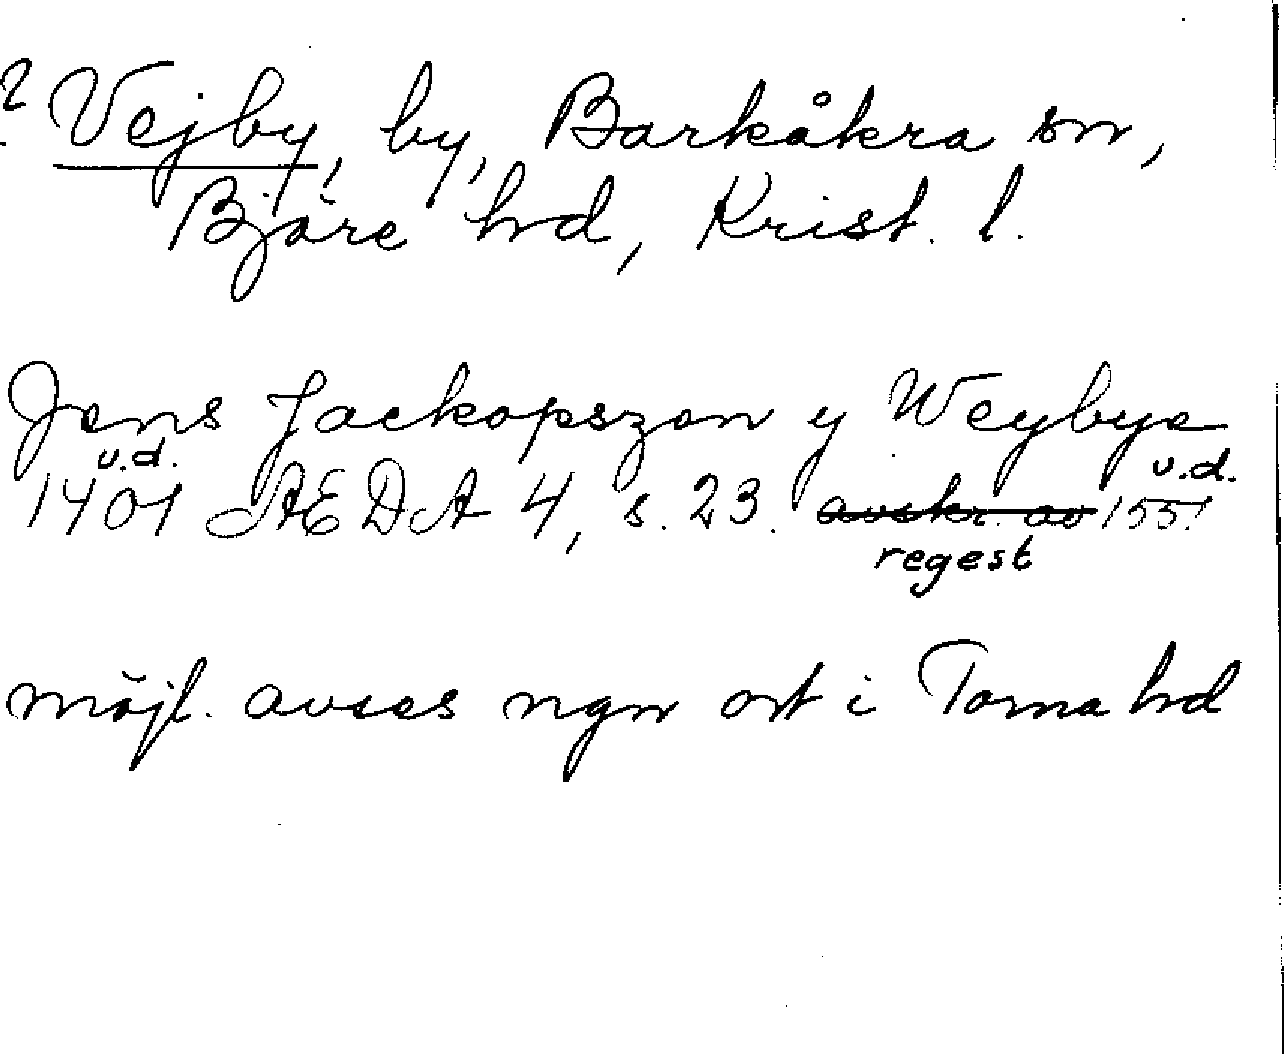 ? Vejby, by, Barkåkra sn,
Bjäre hd, Krist. l.
Jens Jackopszen y Weybye
u.d. u.d.
1401 ÆDA 4, s. 23. avskr. av 1551
regest
möjl. avses ngn ort i Torna hd